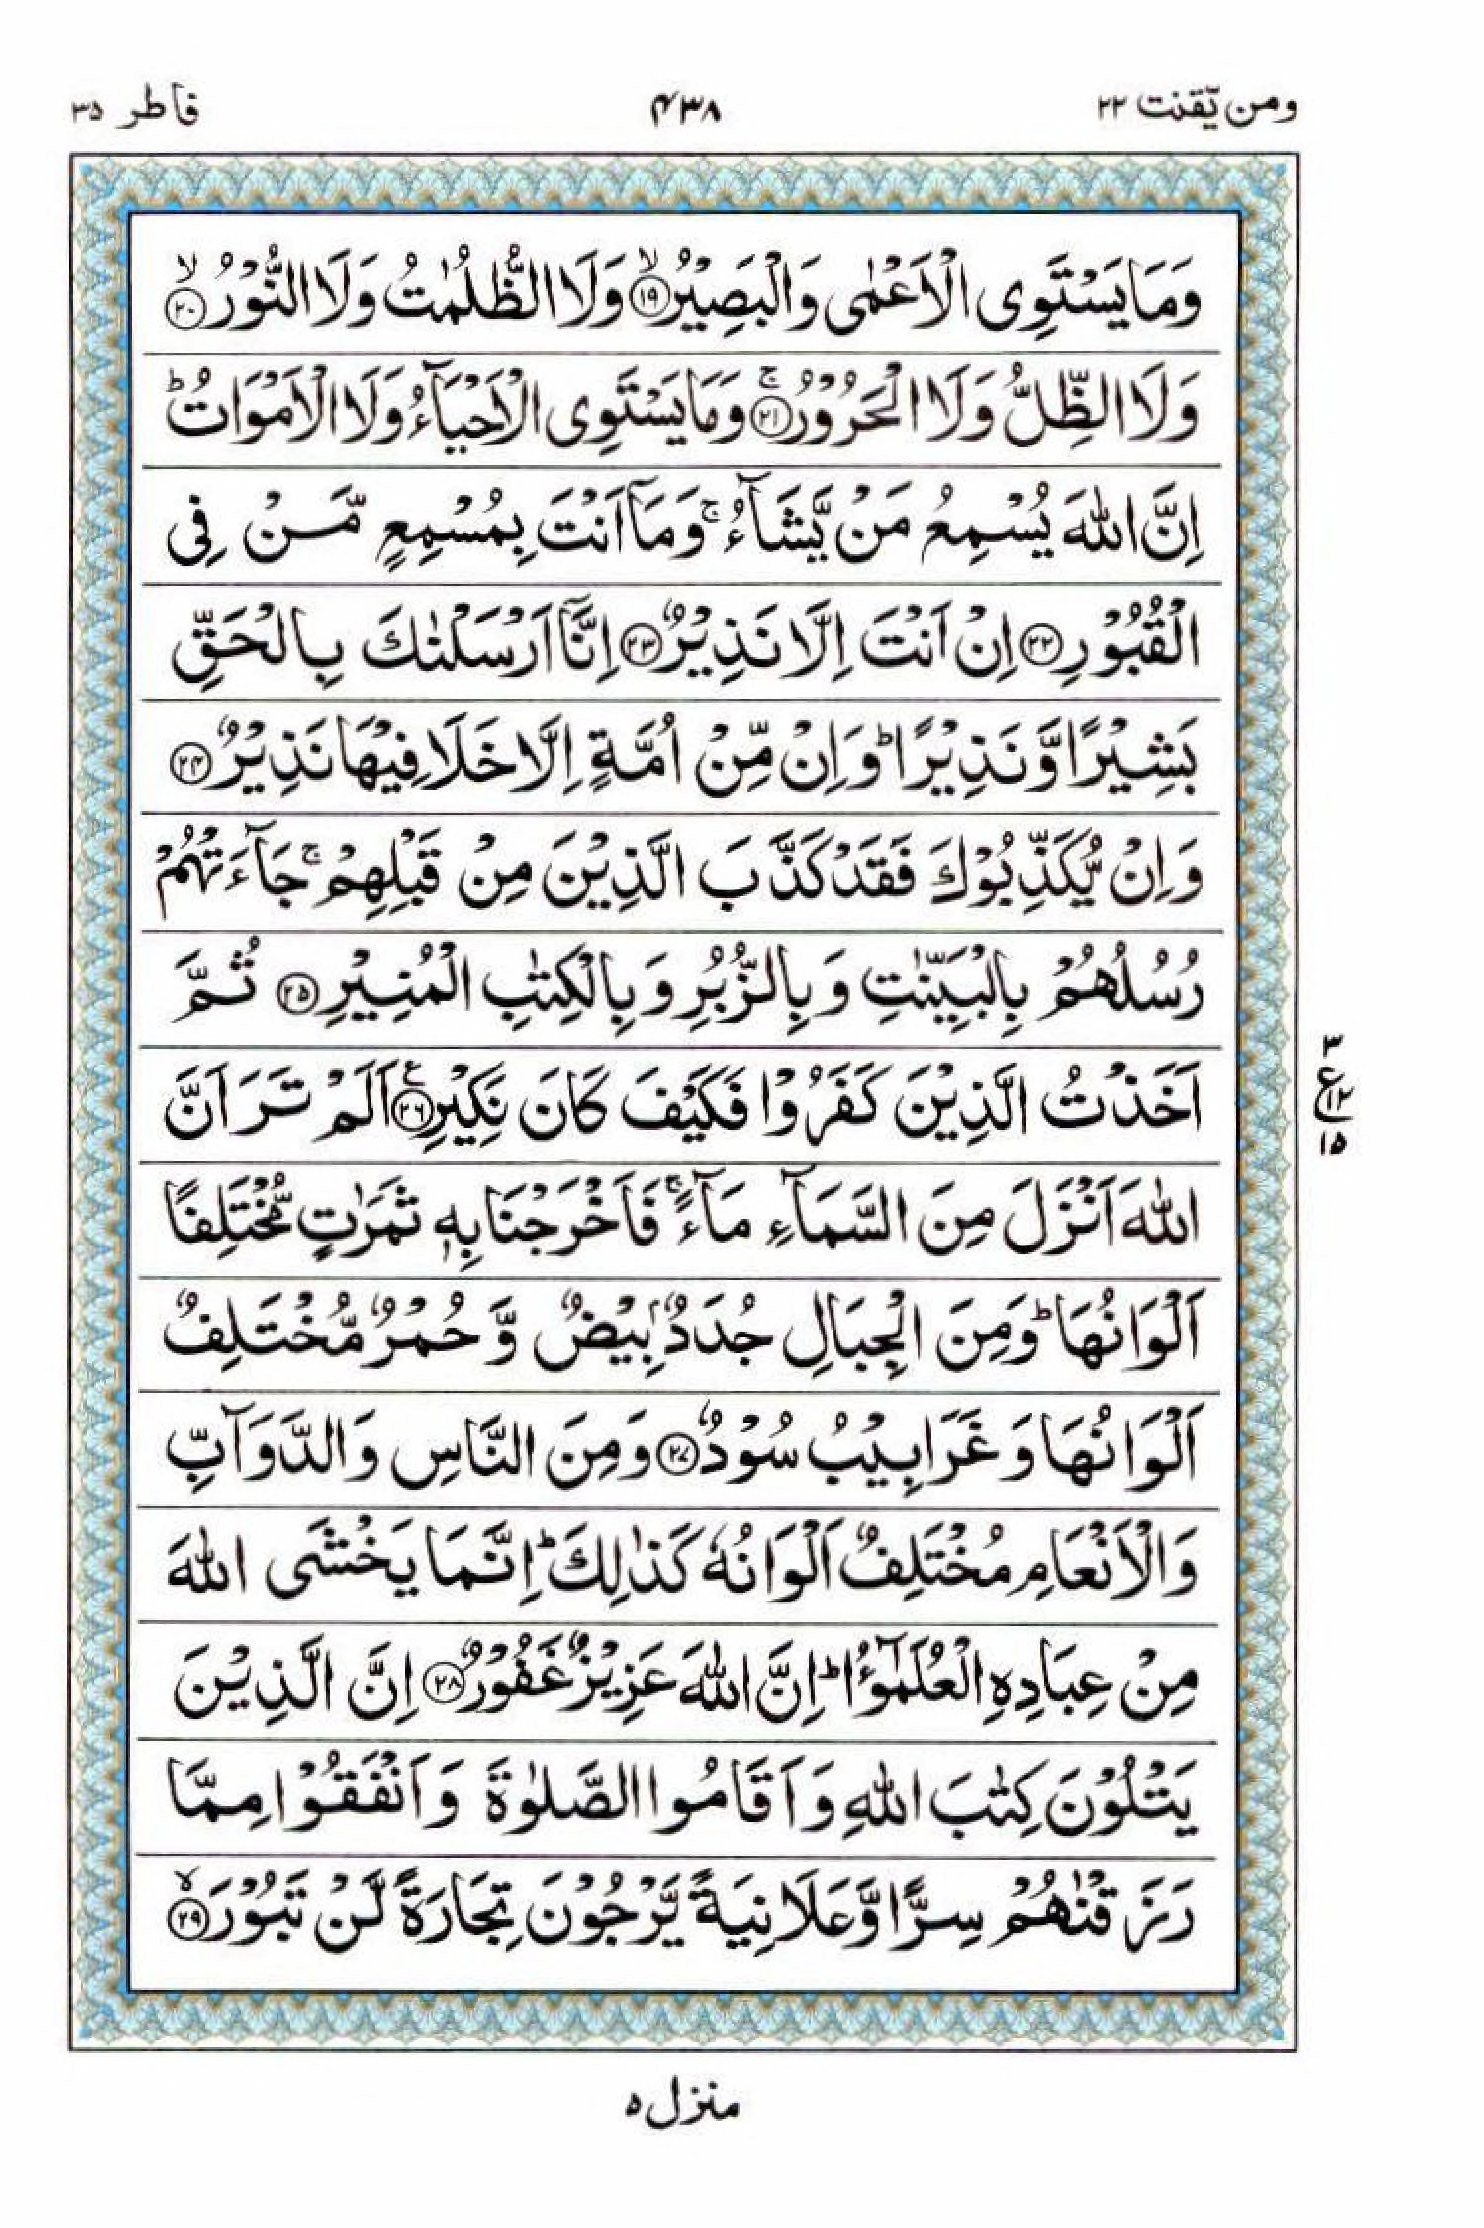 ومن یّقنت ۲۲
۴۳۸
فاطر ۳۵
وَمَا یَسْتَوِی الْاَعْمٰی وَالْبَصِیْرُ ۙ﴿۱۹﴾ وَلَا الظُّلُمٰتُ وَلَا النُّوْرُ ۙ﴿۲۰﴾
وَلَا الظِّلُّ وَلَا الْحَرُوْرُ ۚ﴿۲۱﴾ وَمَا یَسْتَوِی الْاَحْیَآءُ وَلَا الْاَمْوَاتُ ؕ
اِنَّ اللّٰهَ یُسْمِعُ مَنْ یَّشَآءُ ۚ وَمَاۤ اَنْتَ بِمُسْمِعٍ مَّنْ فِی
الْقُبُوْرِ ﴿۲۲﴾ اِنْ اَنْتَ اِلَّا نَذِیْرٌ ﴿۲۳﴾ اِنَّاۤ اَرْسَلْنٰكَ بِالْحَقِّ
بَشِیْرًا وَّنَذِیْرًا ؕ وَاِنْ مِّنْ اُمَّةٍ اِلَّا خَلَا فِیْهَا نَذِیْرٌ ﴿۲۴﴾
وَاِنْ یُّكَذِّبُوْكَ فَقَدْ كَذَّبَ الَّذِیْنَ مِنْ قَبْلِهِمْ ۚ جَآءَتْهُمْ
رُسُلُهُمْ بِالْبَیِّنٰتِ وَبِالزُّبُرِ وَبِالْكِتٰبِ الْمُنِیْرِ ﴿۲۵﴾ ثُمَّ
اَخَذْتُ الَّذِیْنَ كَفَرُوْا فَكَیْفَ كَانَ نَكِیْرِ ﴿۲۶﴾ ع اَلَمْ تَرَ اَنَّ
۳
ع ۱۲
۱۵
اللّٰهَ اَنْزَلَ مِنَ السَّمَآءِ مَآءً ۚ فَاَخْرَجْنَا بِهٖ ثَمَرٰتٍ مُّخْتَلِفًا
اَلْوَانُهَا ؕ وَمِنَ الْجِبَالِ جُدَدٌۢ بِیْضٌ وَّحُمْرٌ مُّخْتَلِفٌ
اَلْوَانُهَا وَغَرَابِیْبُ سُوْدٌ ﴿۲۷﴾ وَمِنَ النَّاسِ وَالدَّوَآبِّ
وَالْاَنْعَامِ مُخْتَلِفٌ اَلْوَانُهٗ كَذٰلِكَ ؕ اِنَّمَا یَخْشَی اللّٰهَ
مِنْ عِبَادِهِ الْعُلَمٰٓؤُا ؕ اِنَّ اللّٰهَ عَزِیْزٌ غَفُوْرٌ ﴿۲۸﴾ اِنَّ الَّذِیْنَ
یَتْلُوْنَ كِتٰبَ اللّٰهِ وَاَقَامُوا الصَّلٰوةَ وَاَنْفَقُوْا مِمَّا
رَزَقْنٰهُمْ سِرًّا وَّعَلَانِیَةً یَّرْجُوْنَ تِجَارَةً لَّنْ تَبُوْرَ ۙ﴿۲۹﴾
منزل ۵